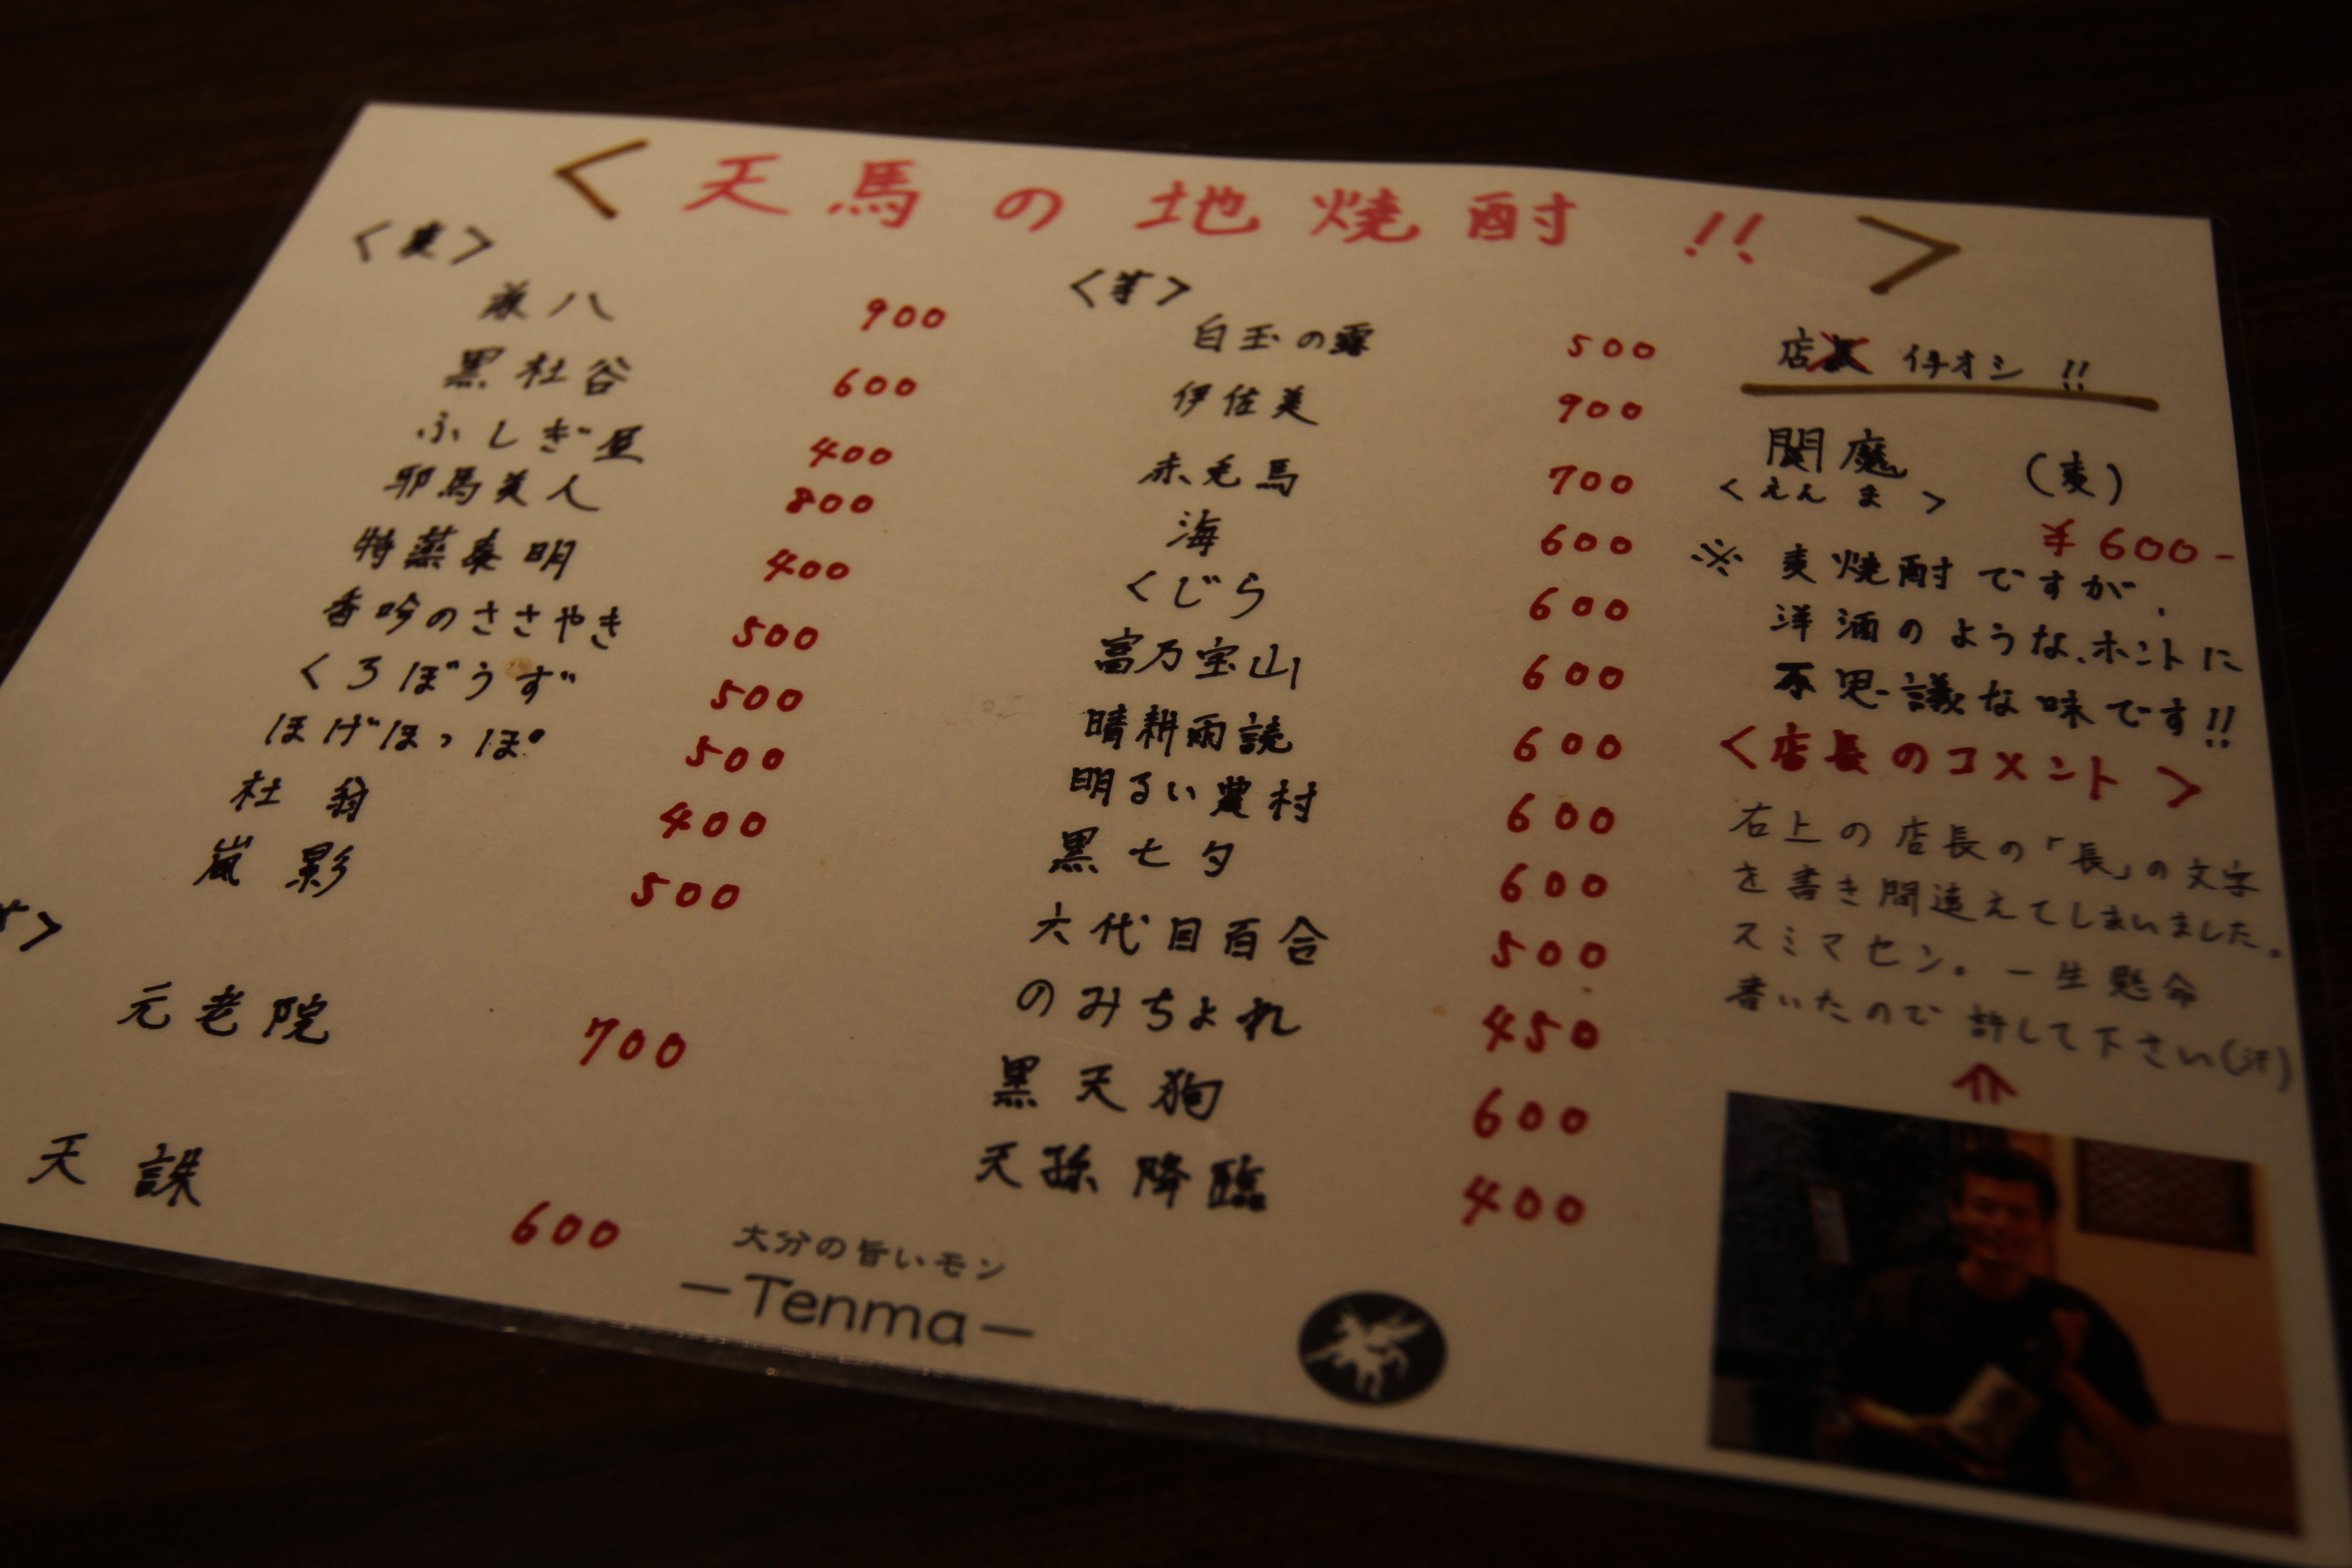 < 天馬の地焼酎 !! >
<麦>
兼八 900
黒杜谷 600
ふしぎ屋 400
耶馬美人 800
特蒸泰明 400
香吟のささやき 500
くろぼうず 500
ほげほっぽ 500
杜翁 400
嵐影 500
元老院 700
天誅 600
<芋>
白玉の露 500
伊佐美 900
赤兎馬 700
海 600
くじら 600
富乃宝山 600
晴耕雨読 600
明るい農村 600
黒七夕 600
六代目百合 500
のみちょれ 450
黒天狗 600
天孫降臨 400
店長 イチオシ !!
閻魔 (麦)
<えんま>
¥600-
※ 麦焼酎ですが、
洋酒のような、ホントに
不思議な味です!!
<店長のコメント>
右上の店長の「長」の文字
を書き間違えてしまいました。
スミマセン。一生懸命
書いたので許して下さい(汗)
大分の旨いモン
—Tenma—